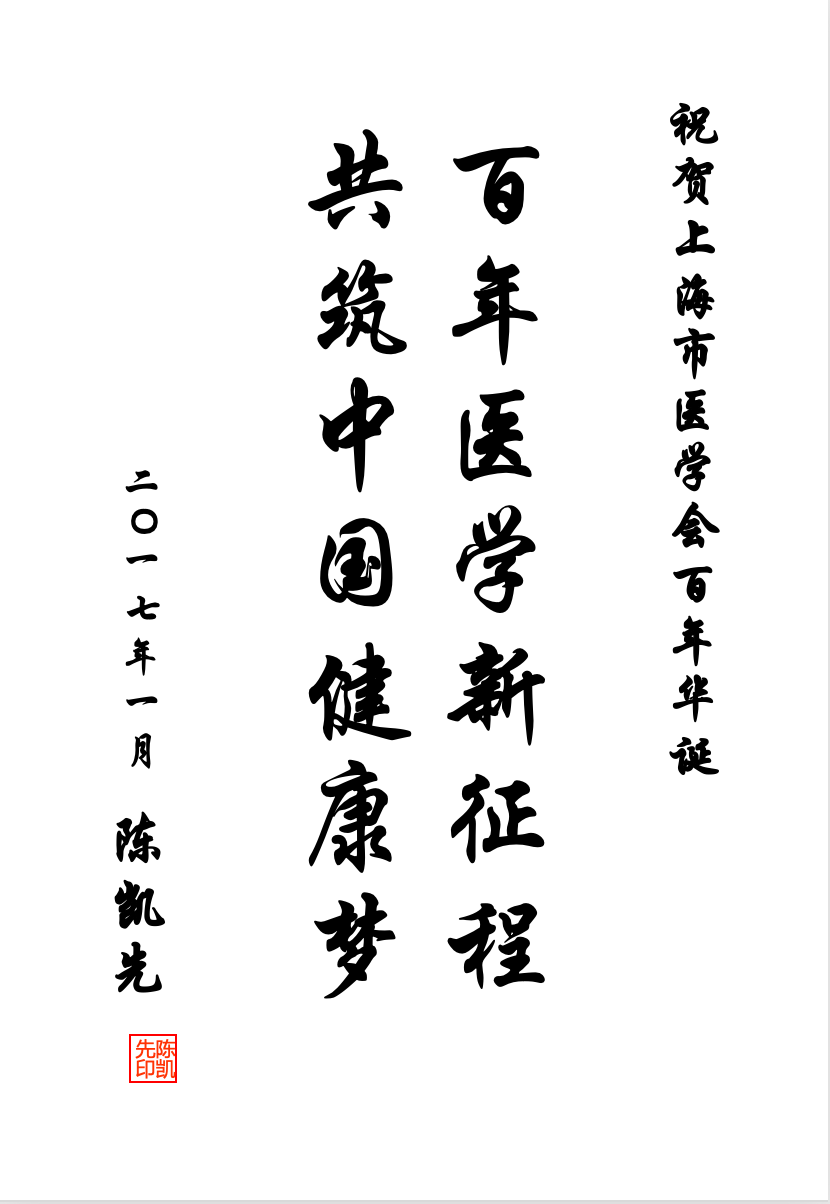 祝贺上海市医学会百年华诞
百年医学新征程
共筑中国健康梦
二〇一七年一月 陈凯先
陈凯先印